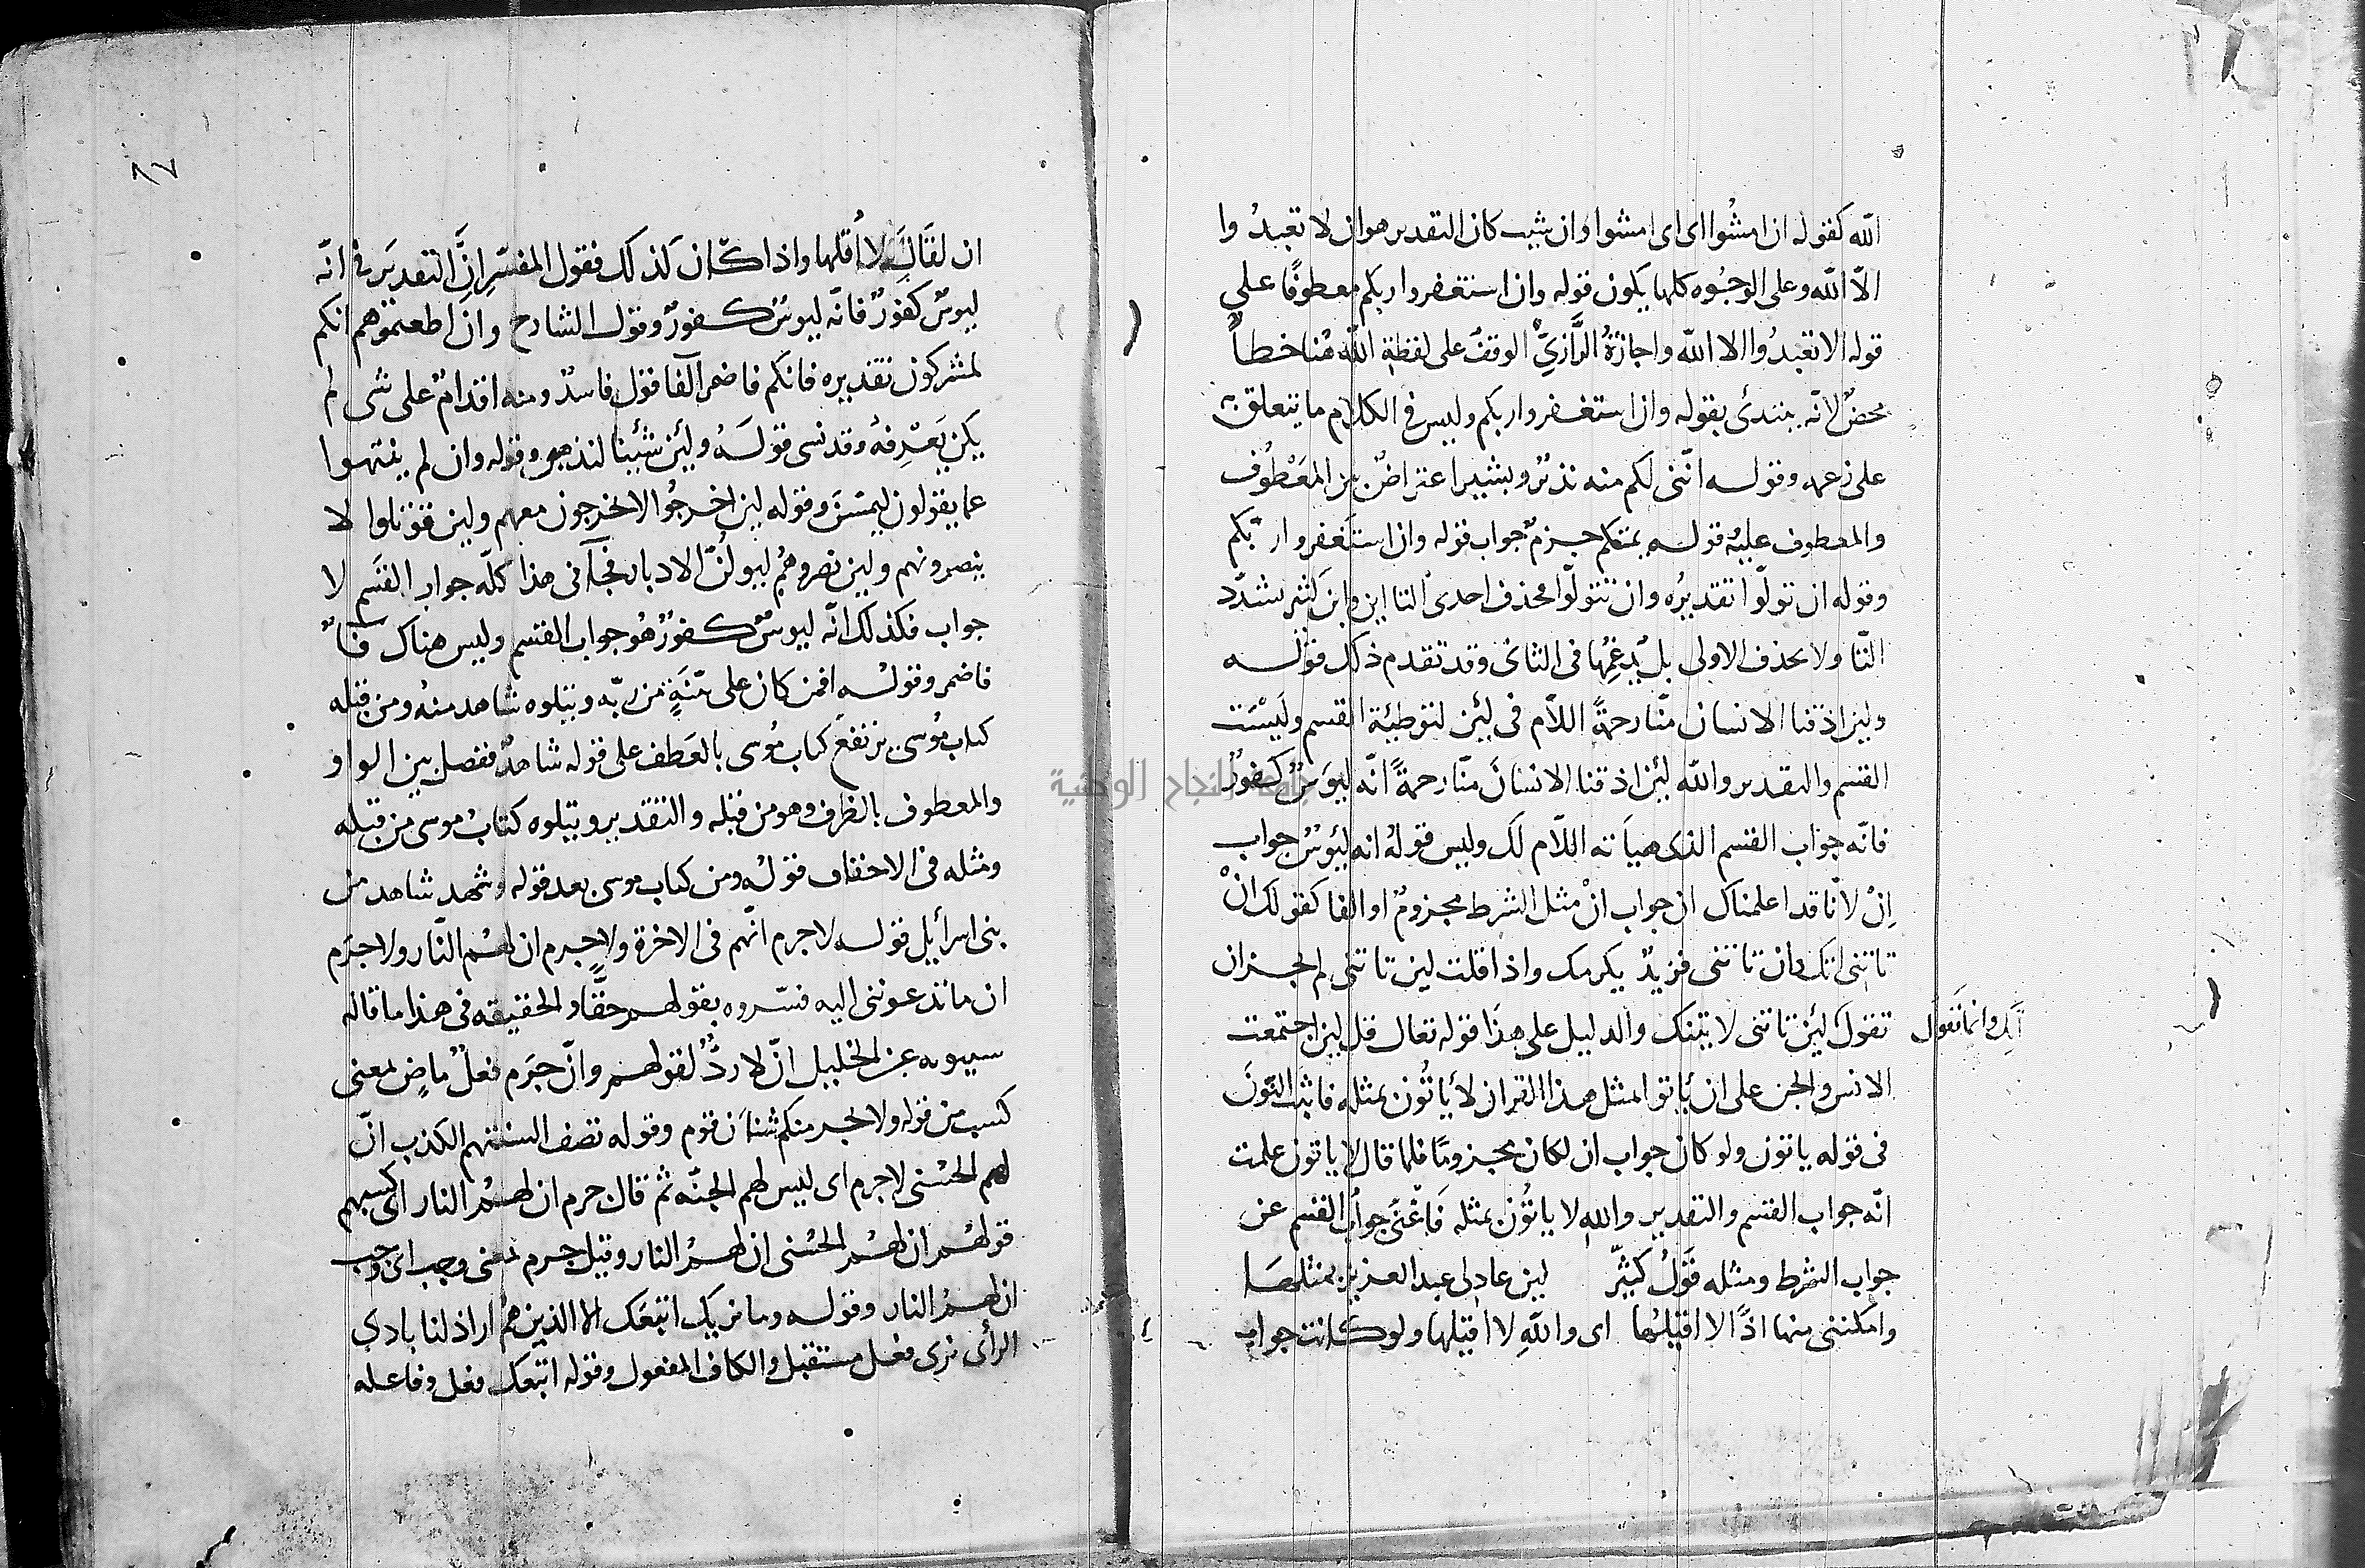 الله كقوله ان امشوا اى اى امشوا وان شيت كان التقدير هو ان لا تعبدوا
الا الله وعلى الوجوه كلها يكون قوله وان استغفروا ربكم معطوفا على
قوله الا تعبدوا الا الله واجازة الرازي الوقف على لفظة الله هنا خطأ
محض لانه يبتدئ بقوله وان استغفروا ربكم وليس في الكلام ما يتعلق به
على زعمه وقوله انني لكم منه نذير وبشير اعتراض بين المعطوف
والمعطوف عليه قوله يمتعكم جزم جواب قوله وان استغفروا ربكم
وقوله ان تولوا تقديره وان تتولوا محذف احدى التاين وابن كثير يشدد
التا ولا يحذف الاولى بل يدغمها في الثانى وقد تقدم ذلك قوله
ولين اذقنا الانسان منا رحمة اللام في لئن لتوطئة القسم وليست
القسم والتقدير والله لئن اذقنا الانسان منا رحمة انه ليوس كفور
فانه جواب القسم الذى هيأته اللام لك وليس قوله انه ليئوس جواب
ان لانا قد اعلمناك ان جواب ان مثل الشرط مجزوم او الفا كقولك ان
تاتنى اتك وان تاتنى فزيد يكرمك واذا قلت لين تاتنى لم يجز ان
تقول لئن تاتنى لا تيتنك والدليل على هذا قوله تعالى قل لين اجتمعت
اتك وانما تقول
الانس والجن على ان ياتوا بمثل هذا القران لا ياتون بمثله فاثبت النون
فى قوله ياتون ولو كان جواب ان لكان مجزوما فلما قال لا ياتون علمت
انه جواب القسم والتقدير والله لا ياتون بمثله فاغنى جواب القسم عن
جواب الشرط ومثله قول كثير لين عاد لى عبد العزيز بمثلها
وامكننى منها اذا لا اقيلها اى والله لا اقيلها ولو كانت جواب
٨٧
ان لقال لا اقلها واذا كان كذلك فقول المفسر ان التقدير فى انه
ليوس كفور فانه ليوس كفور وقول الشارح وان اطعتموهم انكم
لمشركون تقديره فانكم فاضمر الفا قول فاسد ومنه اقدام على شى لم
يكن يعرفه وقد نسى قوله ولئن شئينا لنذهبن وقوله وان لم ينتهوا
عما يقولون ليمسن وقوله لين اخرجوا لا يخرجون معهم ولين قوتلوا لا
ينصرونهم ولين نصروهم ليولن الادبار فجآ فى هذا كله جواب القسم لا
جواب فكذلك انه ليوس كفور هو جواب القسم وليس هناك فا
فاضمر وقوله افمن كان على بينة من ربه ويتلوه شاهد منه ومن قبله
كتاب موسى يرتفع كتاب موسى بالعطف على قوله شاهد ففصل بين الواو
والمعطوف بالظرف وهو من قبله والتقدير ويتلوه كتاب موسى من قبله
ومثله فى الاحقاف قوله ومن كتاب موسى بعد قوله وشهد شاهد من
بنى اسرائيل قوله لا جرم انهم فى الاخرة ولا جرم ان لهم النار ولا جرم
ان ما تدعوننى اليه فسروه بقولهم حقا والحقيقه فى هذا ما قاله
سيبويه عن الخليل ان لا رد لقولهم وان جرم فعل ماض بمعنى
كسب من قوله ولا يجرمنكم شنان قوم وقوله تصف السنتهم الكذب ان
لهم الحسنى لا جرم اى ليس لهم الجنه ثم قال جرم ان لهم النار اى كسبهم
قولهم ان لهم الحسنى ان لهم النار وقيل جرم بمعنى وجب اى وجب
ان لهم النار وقوله وما نريك اتبعك الا الذين هم اراذلنا بادى
الرأى نرى فعل مستقبل والكاف المفعول وقوله اتبعك فعل وفاعله
جامعة النجاح الوطنية